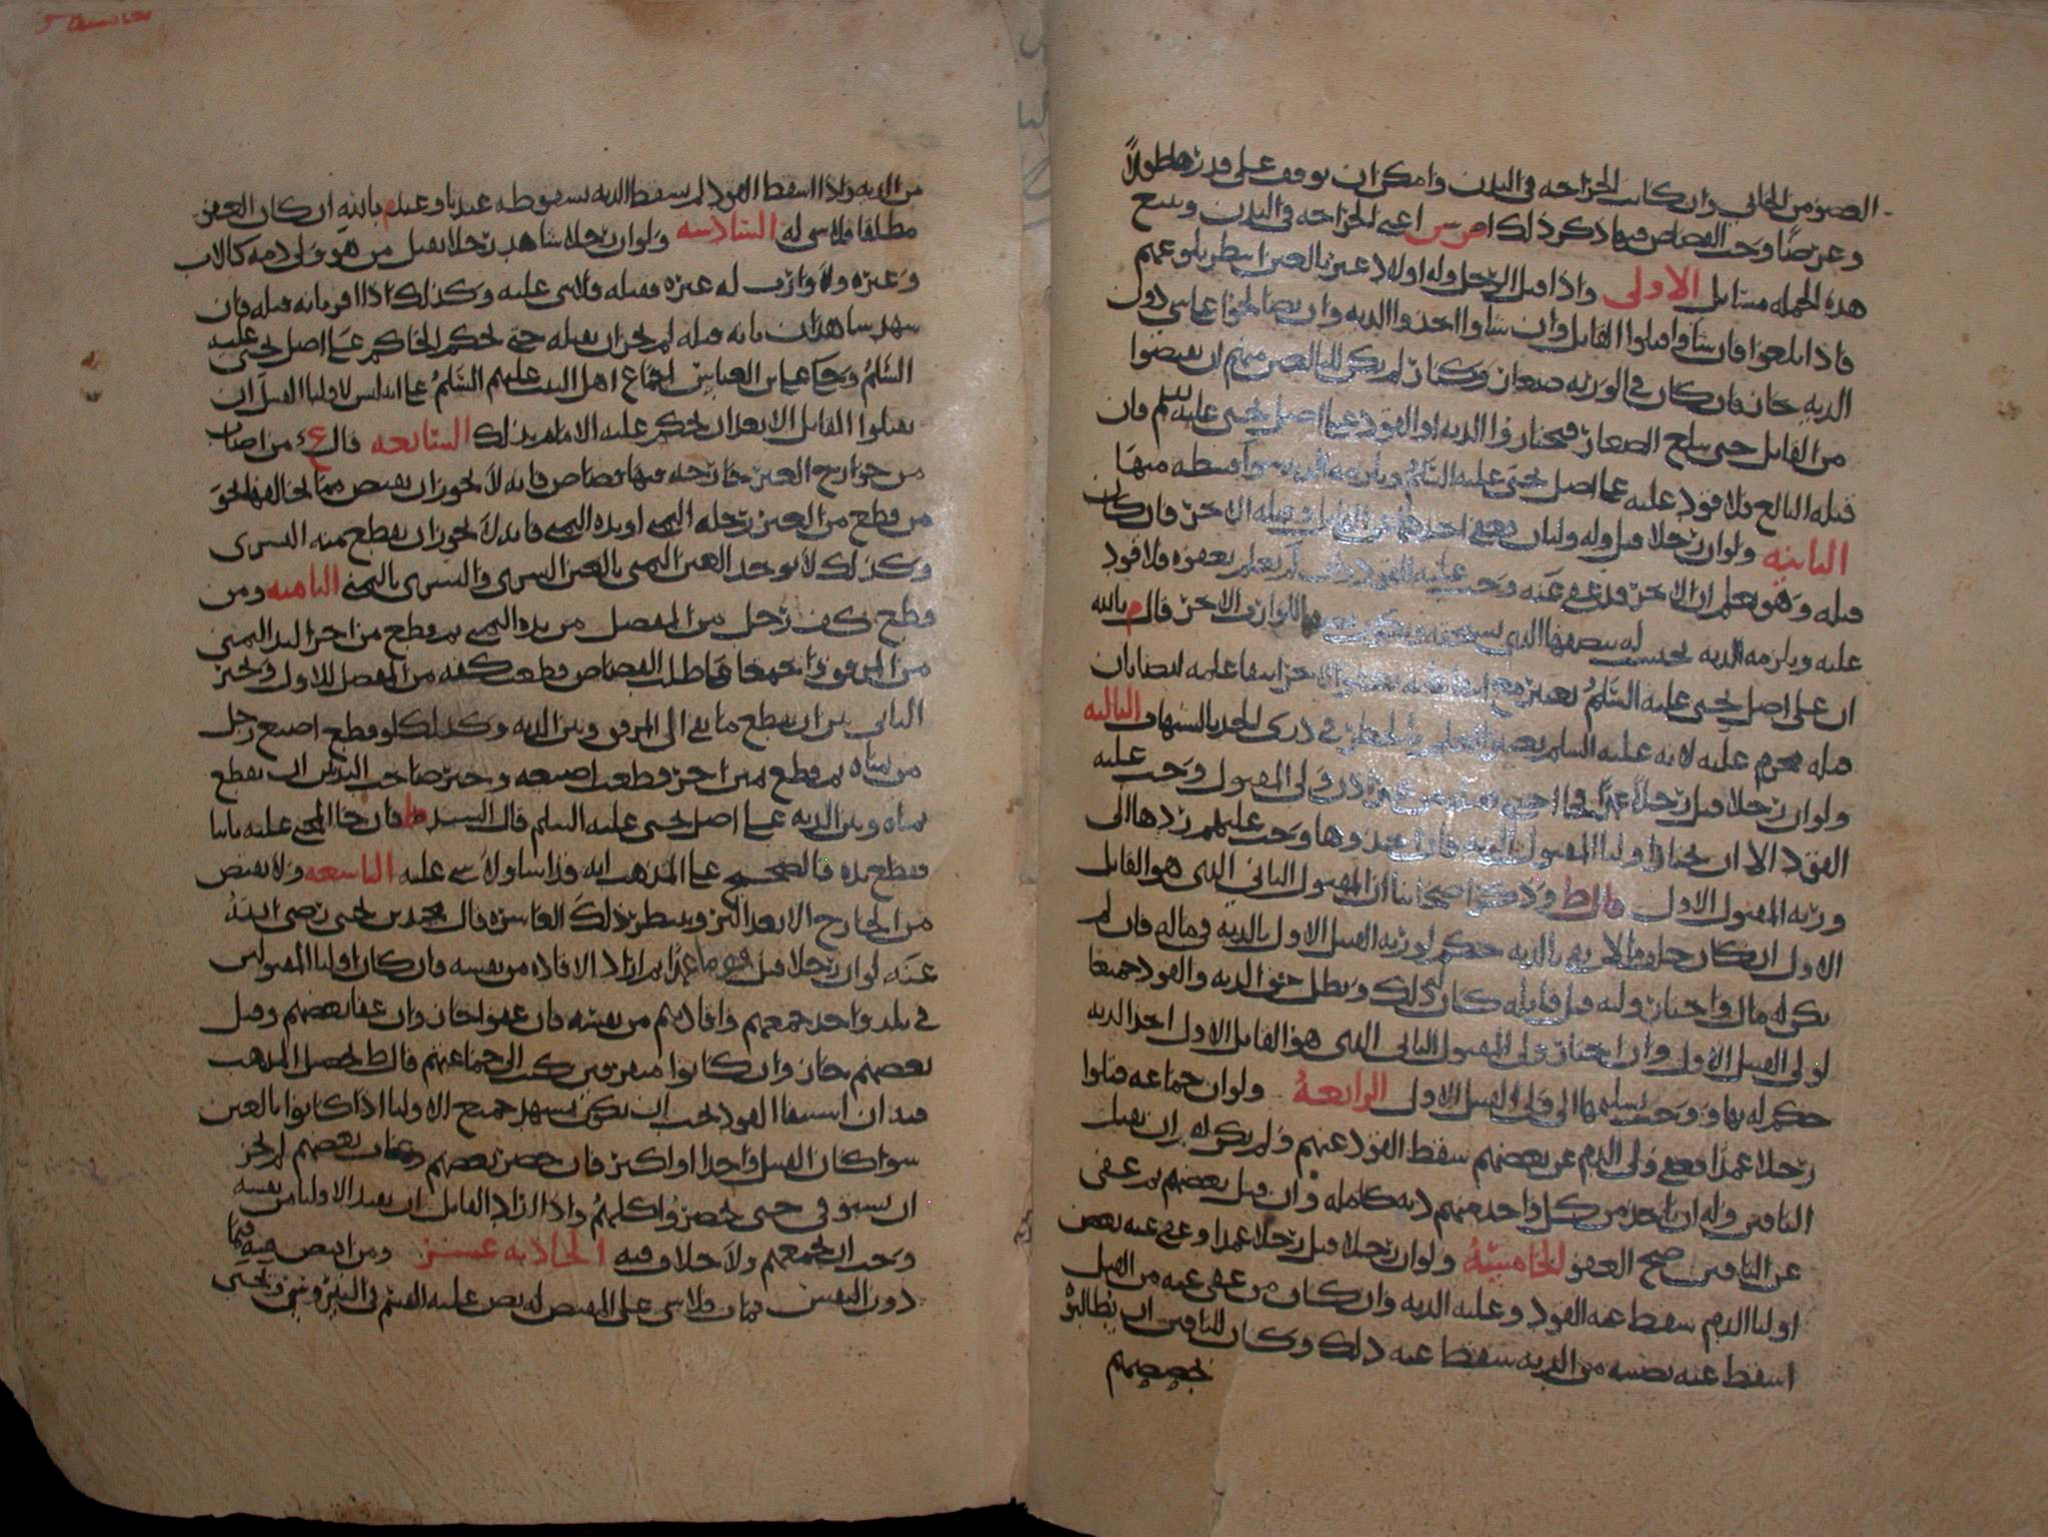 القصور من الجاني وان كانت الجراحه في البدن وامكن ان يوقف على قدرها طولاً
وعرضًا وجب القصاص فيها ذكر ذلك اعني الجراحه في البدن ويتبع
هذه الجمله مسائل الاولى واذا قتل الرجل وله اولاد غير بالغين انتظر بلوغهم
فاذا بلغوا فان شاوا قتلوا القاتل وان شاوا اخذوا الديه وان يصالحوا على شي دون
الديه جاز فان كان في الورثه صغار وكبار لم يكن للبالغين منهم ان يقتصوا
من القاتل حتى يبلغ الصغار فيختاروا الديه او القود على اصل يحيى عليه السلم فان
قتله البالغ فلا قود عليه على اصل يحيى عليه السلم ويلزمه الديه سوا قسطه منها
الثانيه ولو ان رجلا قتل وله وليان فعفى احدهما عن القاتل وقتله الاخر فان كان
قتله وهو يعلم ان الاخر قد عفى عنه وجب عليه القود وان لم يعلم بعفوه فلا قود
عليه ويلزمه الديه يحتسب له بنصفها الذي يستحقه ويكون نصفها لوارث الاخر قال م بالله
ان على اصل يحيى عليه السلم
قتله محرم عليه لانه عليه السلم يعتبر العلم والجهل في درى الحد بالشبهات الثالثه
ولو ان رجلا قتل رجلا عمدًا فجا اجنبي فقتله من غير اذن ولي المقتول وجب عليه
القود الا ان يختار اوليا المقتول الديه فان اخذوها وجب عليهم ردها الى
ورثه المقتول الاول قال ط وذكر اصحابنا ان المقتول الثاني الذي هو القاتل
الاول ان كان خلف مالا يفي بالديه حكم لورثه القتيل الاول بالديه في ماله فان لم
يكن له مال واختار وليه قتل قاتله كان له ذلك وبطل حق الديه والقود جميعا
لولي القتيل الاول وان اختار ولي المقتول الثاني الذي هو القاتل الاول اخذ الديه
حكم له بها ووجب تسليمها الى ولي القتيل الاول الرابعهُ ولو ان جماعه قتلوا
رجلا عمدًا فعفى ولي الدم عن بعضهم سقط القود عنهم ولم يكن له ان يقتل
الباقين وله ان ياخذ من كل واحد منهم ديه كامله وان قتل بعضهم ثم عفى
عن الباقين صح العفو الخامسهُ ولو ان رجلا قتل رجلا عمدا وعفى عنه بعض
اوليا الدم سقط عنه القود وعليه الديه وان كان من عفى عنه من القتل
اسقط عنه نصيبه من الديه سقط عنه ذلك وكان للباقين ان يطالبوه
بحصصهم
من الديه واذا اسقط القود لم يسقط الديه بسقوطه عندنا وعند م بالله ان كان العفو
مطلقا فلا شي له السادسه ولو ان رجلا شاهد رجلا يقتل من هو ولي دمه كالاب
وغيره ولا وارث له غيره فقتله فلا شي عليه وكذلك اذا اقر بانه قتله فان
شهد شاهدان بانه قتله لم يجز ان يقتله حتى يحكم الحاكم على اصل يحيى عليه
السلمُ وحكا على بن العباس اجماع اهل البيت عليهم السلمُ على انه ليس لاوليا القتيل ان
يقتلوا القاتل الا بعد ان يحكم عليه الامام بذلك السابعه قال ع من اصاب
من جوارح الغير جارحه فيها قصاص فانه لا يجوز ان يقتص مما يخالفها نحو
من قطع من الغير رجله اليمنى او يده اليمنى فانه لا يجوز ان يقطع منه اليسرى
وكذلك لا توخذ العين اليمنى بالعين اليسرى واليسرى باليمنى الثامنه ومن
قطع كف رجل من المفصل من يده اليمنى ثم قطع من اخر اليد اليمنى
من المرفق واجتمعا في طلب القصاص قطعت كفه من المفصل للاول وخير
الثاني بين ان يقطع ما بقى الى المرفق وبين الديه وكذلك لو قطع اصبع رجل
من يمناه ثم قطع يمين اخر قطعت اصبعه وخير صاحب اليد بين ان يقطع
يمناه وبين الديه على اصل يحيى عليه السلم قال السيد ط فان جا المجني عليه ثانيا
فقطع يده فالصحيح على المذهب انه قد اسا ولا شي عليه التاسعه ولا يقتص
من الجارح الا بعد البرو وينتظر ذلك العاشره قال محمد بن يحيى رضي اللهُ
عنه لو ان رجلا قتل قوما عمدًا ثم اراد الاقاده من نفسه فان كان اوليا المقتولين
في بلد واحد جمعهم واقادهم من نفسه فان عفوا جاز وان عفا بعضهم وقتل
بعضهم جاز وان كانوا متفرقين كتب الى جماعتهم قال ط تحصيل المذهب
فيه ان استيفا القود يجب ان يكون بمشهد جميع الاوليا اذا كانوا بالغين
سوا كان القتيل واحدا او اكثر فان حضر بعضهم وغاب بعضهم لم يجز
ان يستوفى حتى يحضروا كلهمُ واذا اراد القاتل ان يقيد الاوليا من نفسه
وجب ان يجمعهم ولا خلاف فيه الحاديه عشر ومن اقتص فيه فيما
دون النفس فمات فلا شي على المقتص له نص عليه القسم في النيروسي ويحيى